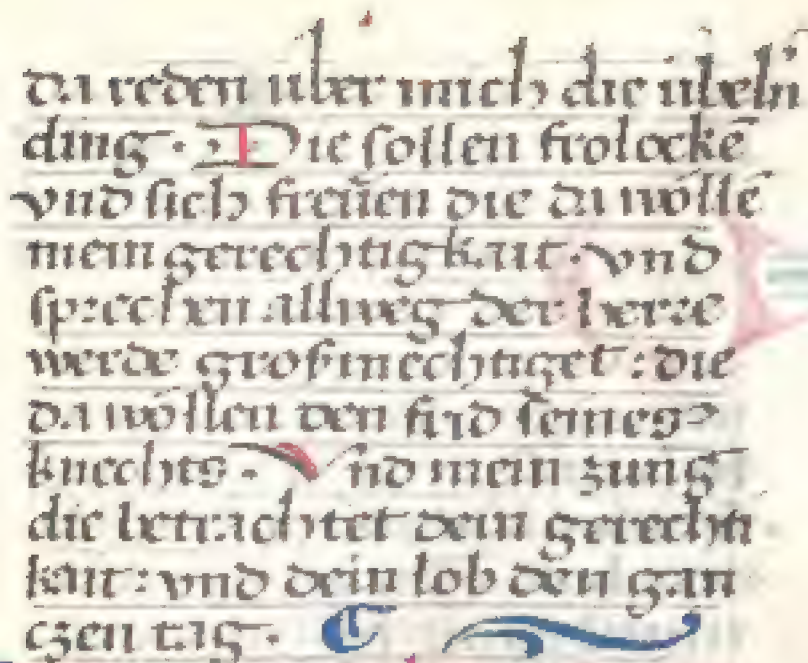 da reden uber mich die ubeln
ding. Die sollen frolockē
vnd sich freuͤen die da wöllē
mein gerechtigkait. vnd
sprechen allweg der herre
werde großmechtiget: die
da wöllen den frid seines
knechts. Vnd mein zung
die betrachtet dein gerechti
kait: vnd dein lob den gan
czen tag.